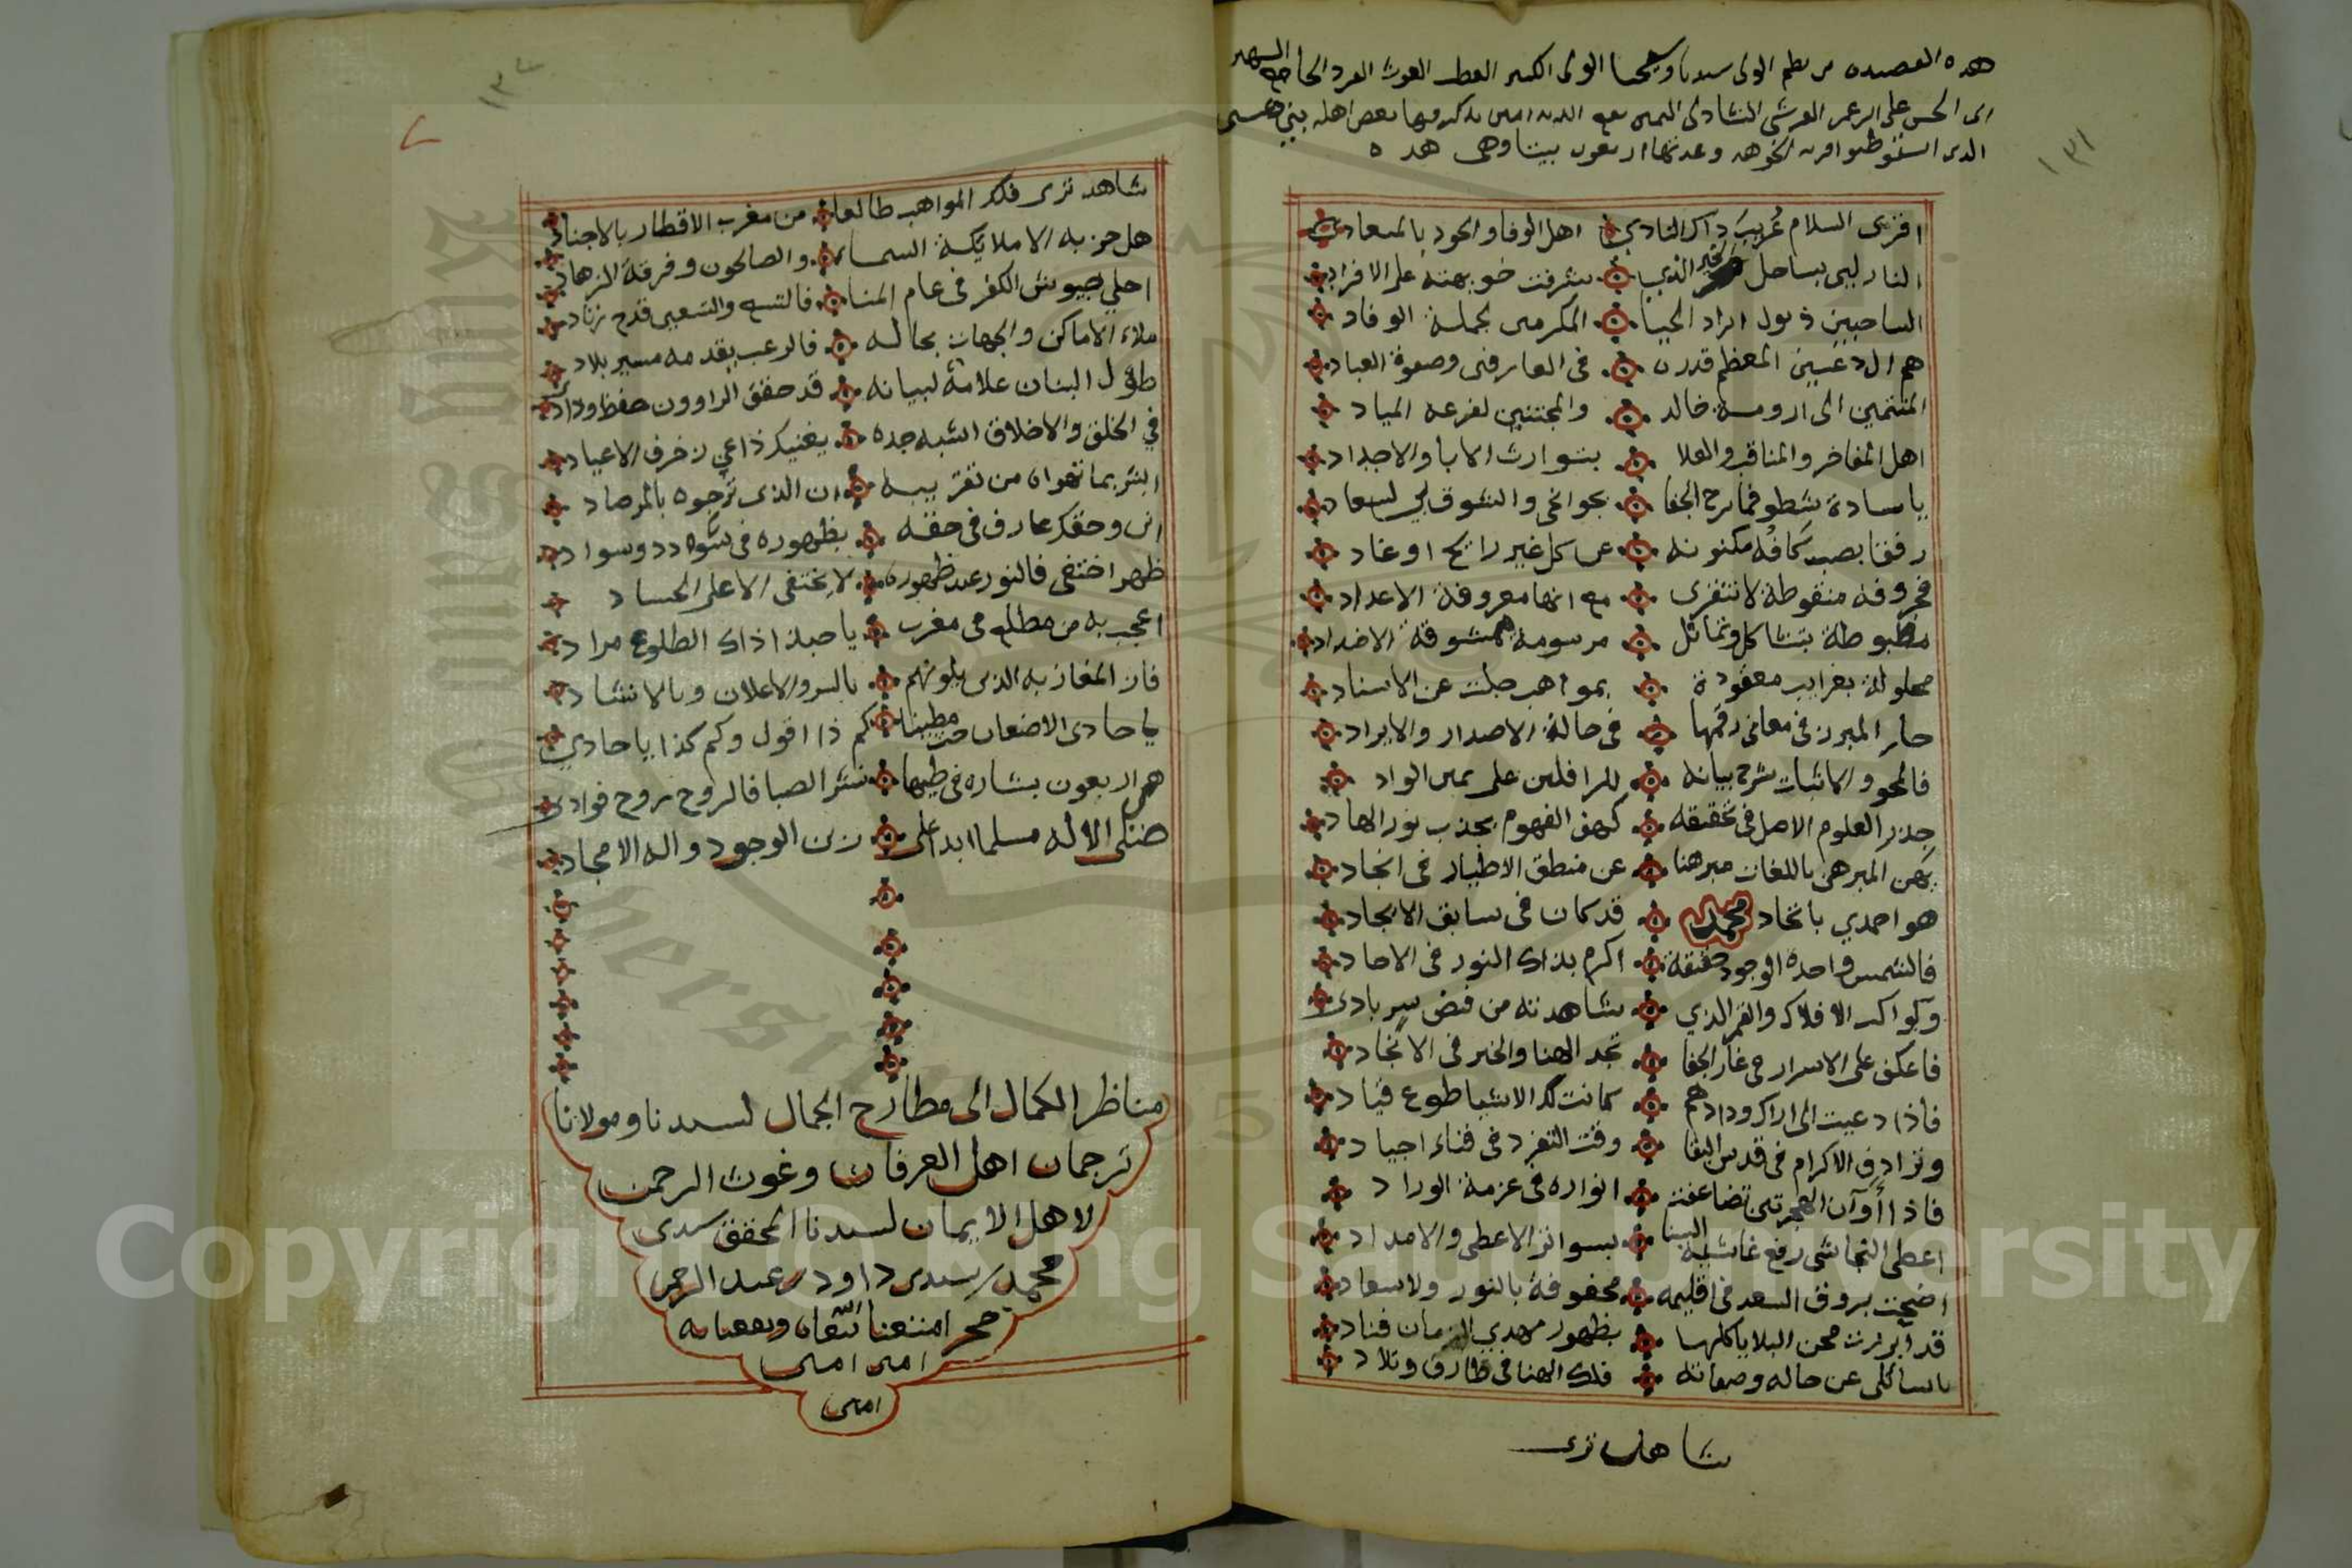 هذه القصيدة من نظم الولي سيدنا وشيخنا الولي الكبير القطب الغوث الفرد الجامع الشهير
ابى الحسن على ابن عمر القرشي الشاذلى اليمنى نفع الله به امين يذكر فيها بعض اهله بني دعسين
الذين استوطنوا قرية الجوهه وعدتها اربعون بيتا وهي هذه
١٣١
اقرى السلام غريب ذاك النادي اهل الوفا والجود بالميعادي
النازلين بساحل البحر الذي شرفت خويهته على الافراد
الساحبين ذيول ابراد الحيا المكرمين لجملة الوفاد
هم ال دعسين المعظم قدره فى العارفين وصفوة العباد
المنتمين الى ارومة خالد والمجتنين لفرعه المياد
اهل المفاخر والمناقب والعلا بتوارث الابا والاجداد
يا سادة شطو فما برح الجفا بجوانحي والشوق لي لسعاد
رفقا بصب كافه مكنونه عن كل غير رائح او غاد
فحروفه منقوطة لا تنقرى مع انها معروفة الاعداد
مضبوطة بتشاكل وتماثل مرسومة ممشوقة الاضداد
محلولة بغرايب معقودة بمواهب جلت عن الاسناد
حار المبرز فى معانى رقمها فى حالة الاصدار والايراد
فالمحو والاثبات شرح بيانه للرافلين على يمين الواد
جذر العلوم الاصل فى تحقيقه كهف الفهوم بجذب نور الهاد
بهن المبرهن باللغات مبرهنا عن منطق الاطيار فى انجاد
هو احمدي باتحاد محمد قد كان فى سابق الايجاد
فالشمس واحدة الوجود حقيقة اكرم بذاك النور فى الاحاد
وكواكب الافلاك والقمر الذي شاهدته من فيض سر بادى
فاعكف على الاسرار فى غار الجفا تجد الهنا والخير فى الانجاد
فاذا دعيت الى اراك ودادهم كانت لك الاشيا طوع قياد
وترادف الاكرام فى قدس البقا وقت التفرد فى فناء اجياد
فاذا أوان الهجرتين تضاعفت انواره فى عزمة الوراد
اعطى النجاشي رفع غاشية الينا بسواتر الاعطى والامداد
اضحت بروق السعد فى اقليمه محفوفة بالنور والاسعاد
قد آبرزت محن البلايا كلها بظهور مهدي الزمان فناد
ياسائلى عن حاله وصفاته فلك الهنا فى طارف وتلاد
شاهد ترى
١٣٢
شاهد ترى فلك المواهب طالعا من مغرب الاقطار بالاجناد
هل حزبه الا ملائكة السما والصالحون وفرقة الزهاد
اجلي جيوش الكفر فى عام المنا فالتسع والتسعين قدح زناد
ملاء الاماكن والجهات بحاله فالرعب يقدمه مسير بلاد
طول البنان علامة لبيانه قد حقق الراوون حفظ وداد
في الخلق والاخلاق اشبه جده يغنيك ذا عن زخرف الاعياد
ابشر بما تهواه من تقريبه ان الذى ترجوه بالمرصاد
انى وحقك عارف فى حقه بظهوره فى سؤدد وسواد
ظهر اختفى فالنور عند ظهوره لا يختفى الا على الحساد
اعجب به من مطلع فى مغرب يا حبذا ذاك الطلوع مراد
فاز المغازبة الذى يلونهم بالسر والاعلان وبالانشاد
يا حادى الاضعان حث مطينا كم ذا اقول وكم كذا يا حادي
هى اربعون بشاره فى طيها نشر الصبا فالروح روح فوادي
صلى الاله مسلما ابدا على زين الوجود واله الامجاد
مناظر الكمال الى مطارح الجمال لسيدنا ومولانا
ترجمان اهل العرفان وغوث الرحمن
لاهل الايمان لسيدنا المحقق سيدى
محمد سيدى داود عبد الرحمن
حجر امتعنا الله تعالى وبعنايه
امين امين
امين
Copyright © King Saud University